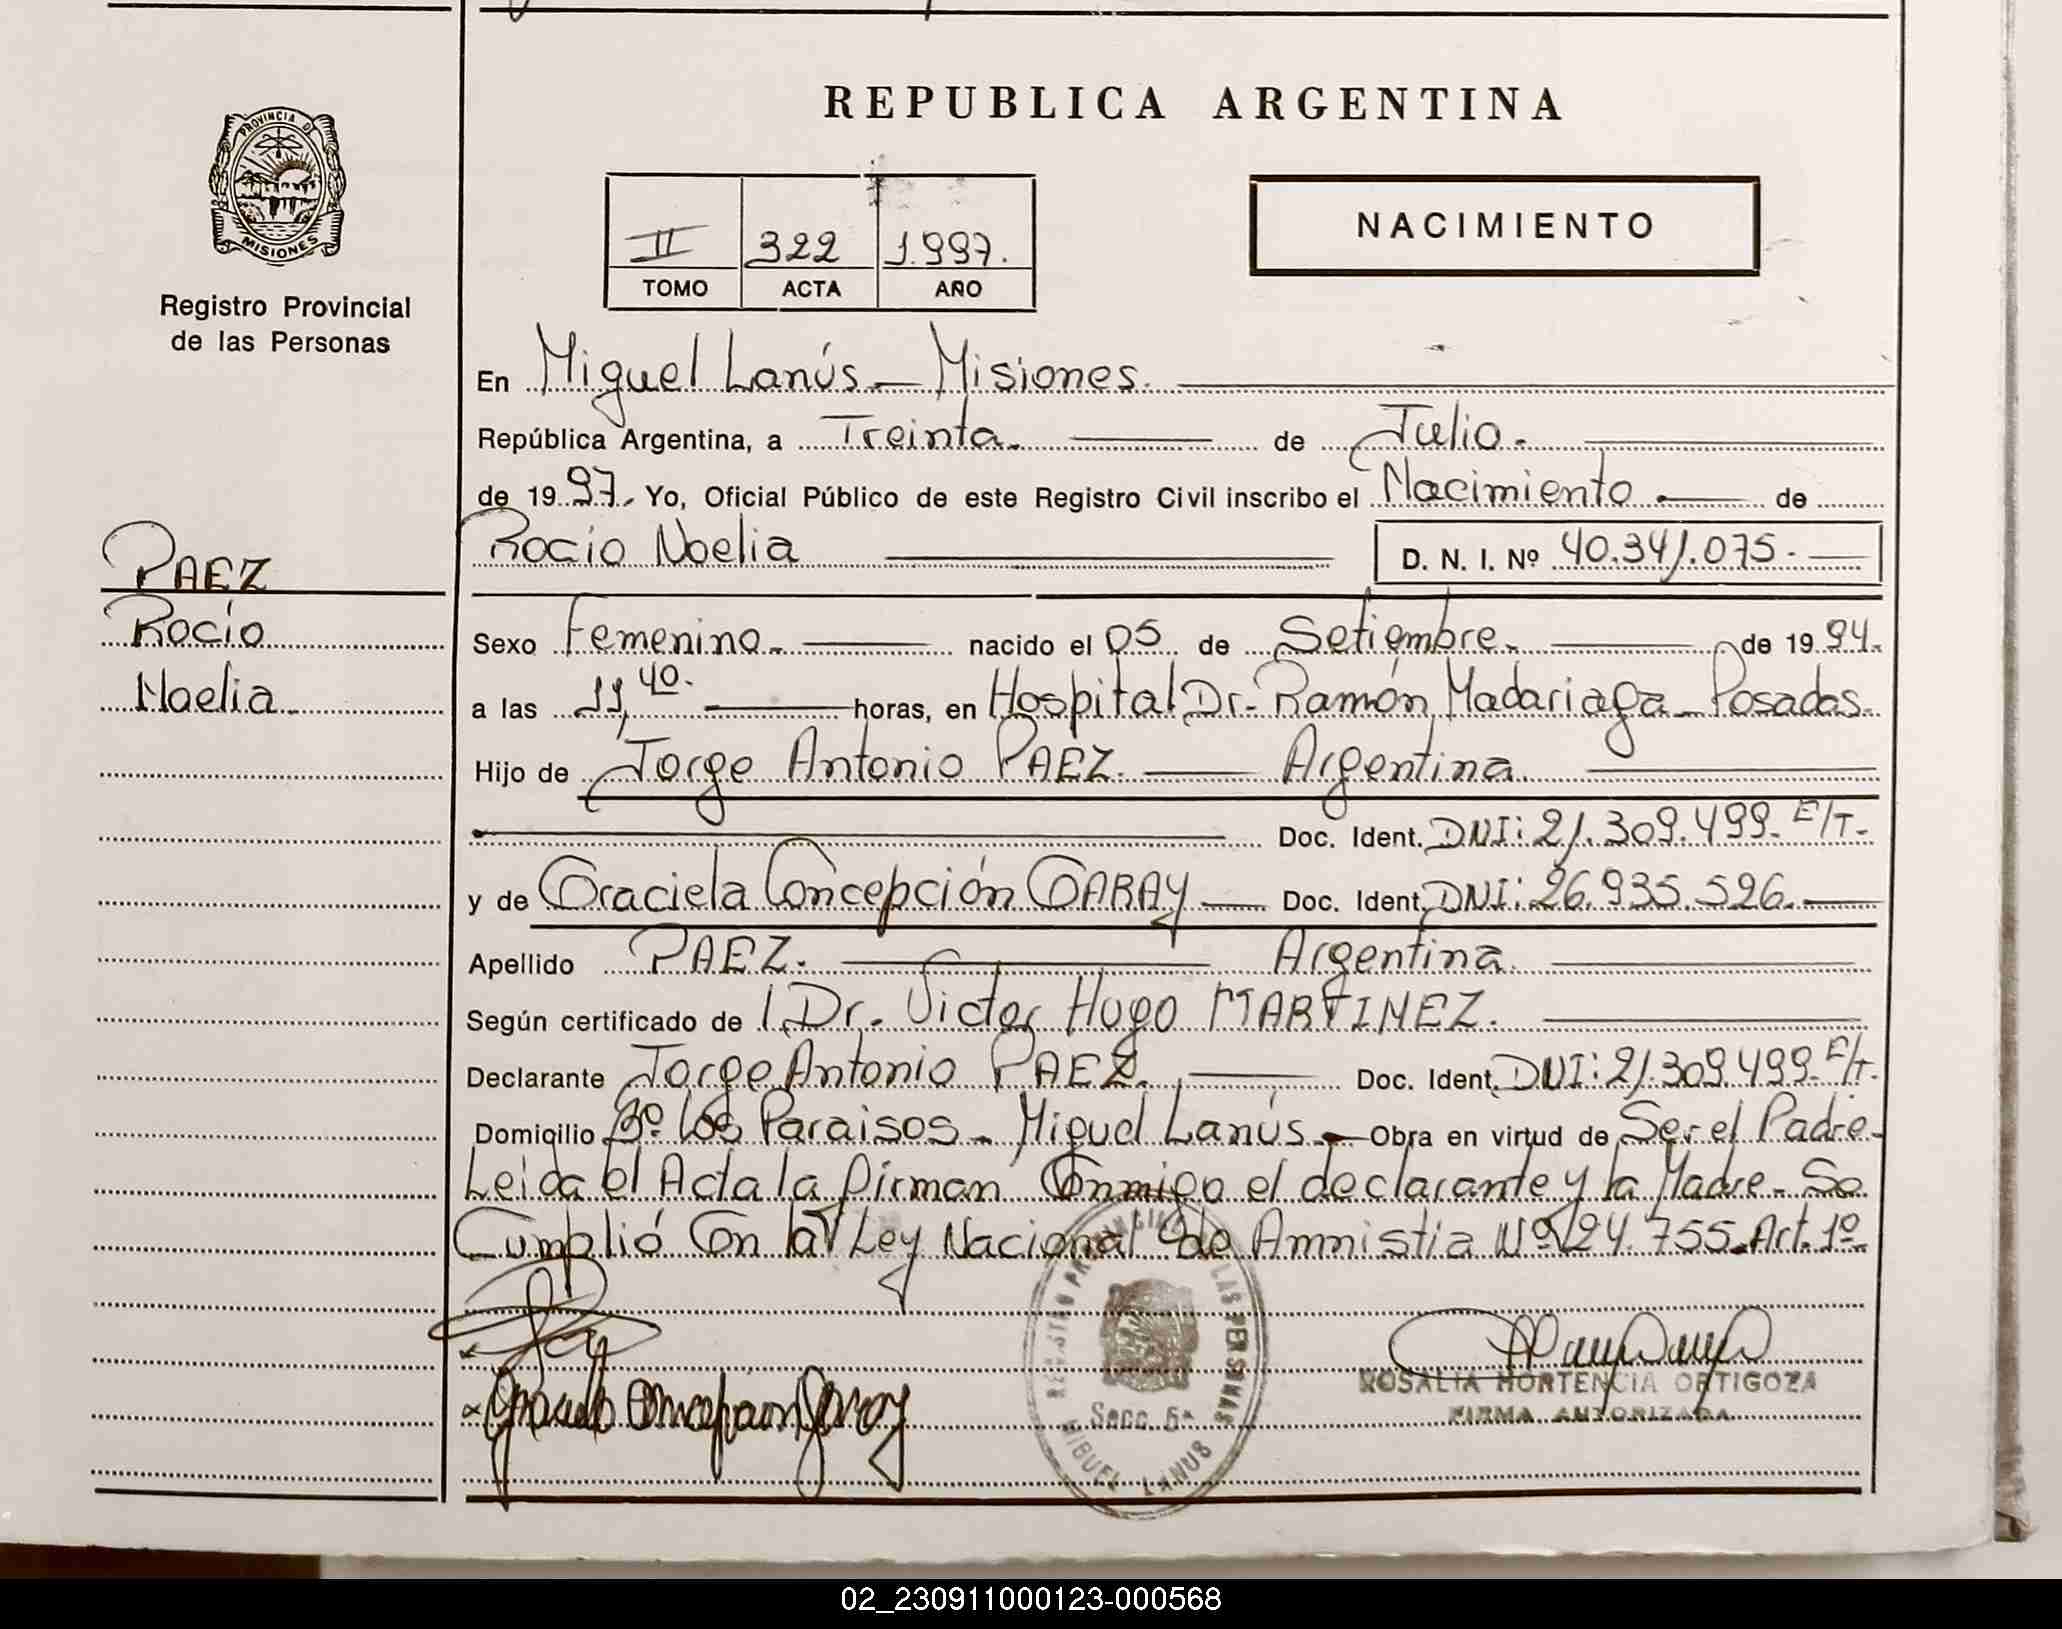 REPUBLICA ARGENTINA
PROVINCIA DE
MISIONES
Registro Provincial
de las Personas
II 322 1.997.
TOMO ACTA AÑO
NACIMIENTO
En Miguel Lanús - Misiones.
República Argentina, a Treinta. de Julio.
de 1997. Yo, Oficial Público de este Registro Civil inscribo el Nacimiento de
PAEZ
Rocío
Noelia
Rocío Noelia D. N. I. Nº 40.341.075.
Sexo Femenino. nacido el 05 de Setiembre. de 1994.
a las 11,40. horas, en Hospital Dr. Ramón Madariaga - Posadas.
Hijo de Jorge Antonio PAEZ. Argentina.
Doc. Ident. DNI: 21.309.499. E/T.
y de Graciela Concepción GARAY Doc. Ident. DNI: 26.935.526.
Apellido PAEZ. Argentina.
Según certificado de l Dr. Victor Hugo MARTINEZ.
Declarante Jorge Antonio PAEZ. Doc. Ident. DNI: 21.309.499. E/T.
Domicilio Bº. Los Paraisos - Miguel Lanús. Obra en virtud de Ser el Padre.
Leida el Acta la firman Conmigo el declarante y la Madre - Se
Cumplió Con la Ley Nacional de Amnistia Nº 24.755. Art. 1º
REGISTRO PROVINCIAL DE LAS PERSONAS
Secc. 5ª
MIGUEL LANUS
Graciela Concepcion Garay
ROSALIA HORTENCIA ORTIGOZA
FIRMA AUTORIZADA
02_230911000123-000568